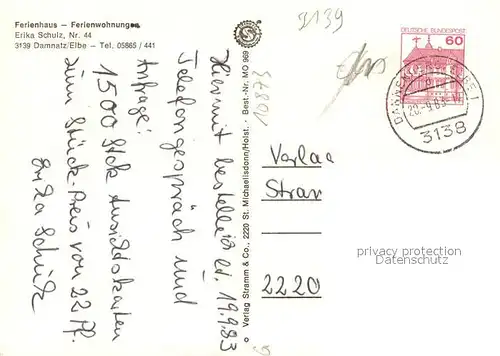 Ferienhaus – Ferienwohnungen
Erika Schulz, Nr. 44
3139 Damnatz/Elbe – Tel. 05865 / 441
9139
DEUTSCHE BUNDESPOST
60
DANNENBERG
20.-9.83
3138
Hiermit bestelle ich lt.
Telefongespräch und
Anfrage: 19.9.83
1500 Stck Ansichtskarten
zum Stück-Preis von 22 Pf.
Erika Schulz
10873
© Verlag Stramm & Co., 2220 St. Michaelisdonn/Holst. · Best.-Nr. MO 969
Verlag
Stram
2220
privacy protection
Datenschutz